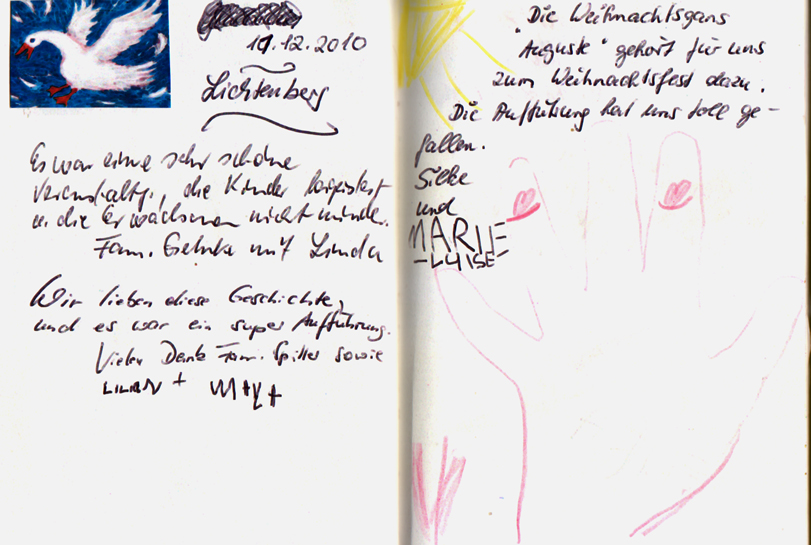 19.12.2010
Lichtenberg
Es war eine sehr schöne
Veranstaltg., die Kinder begeistert
u. die Erwachsenen nicht minder.
Fam. mit Linda
Wir lieben diese Geschichte,
und es war ein super Aufführung.
Vielen Dank Fam. Spiller sowie
LILIAN + MAYA
Die Weihnachtsgans
"Auguste" gehört für uns
zum Weihnachtsfest dazu.
Die Aufführung hat uns toll ge-
fallen.
Silke
und
MARIE
-LUISE